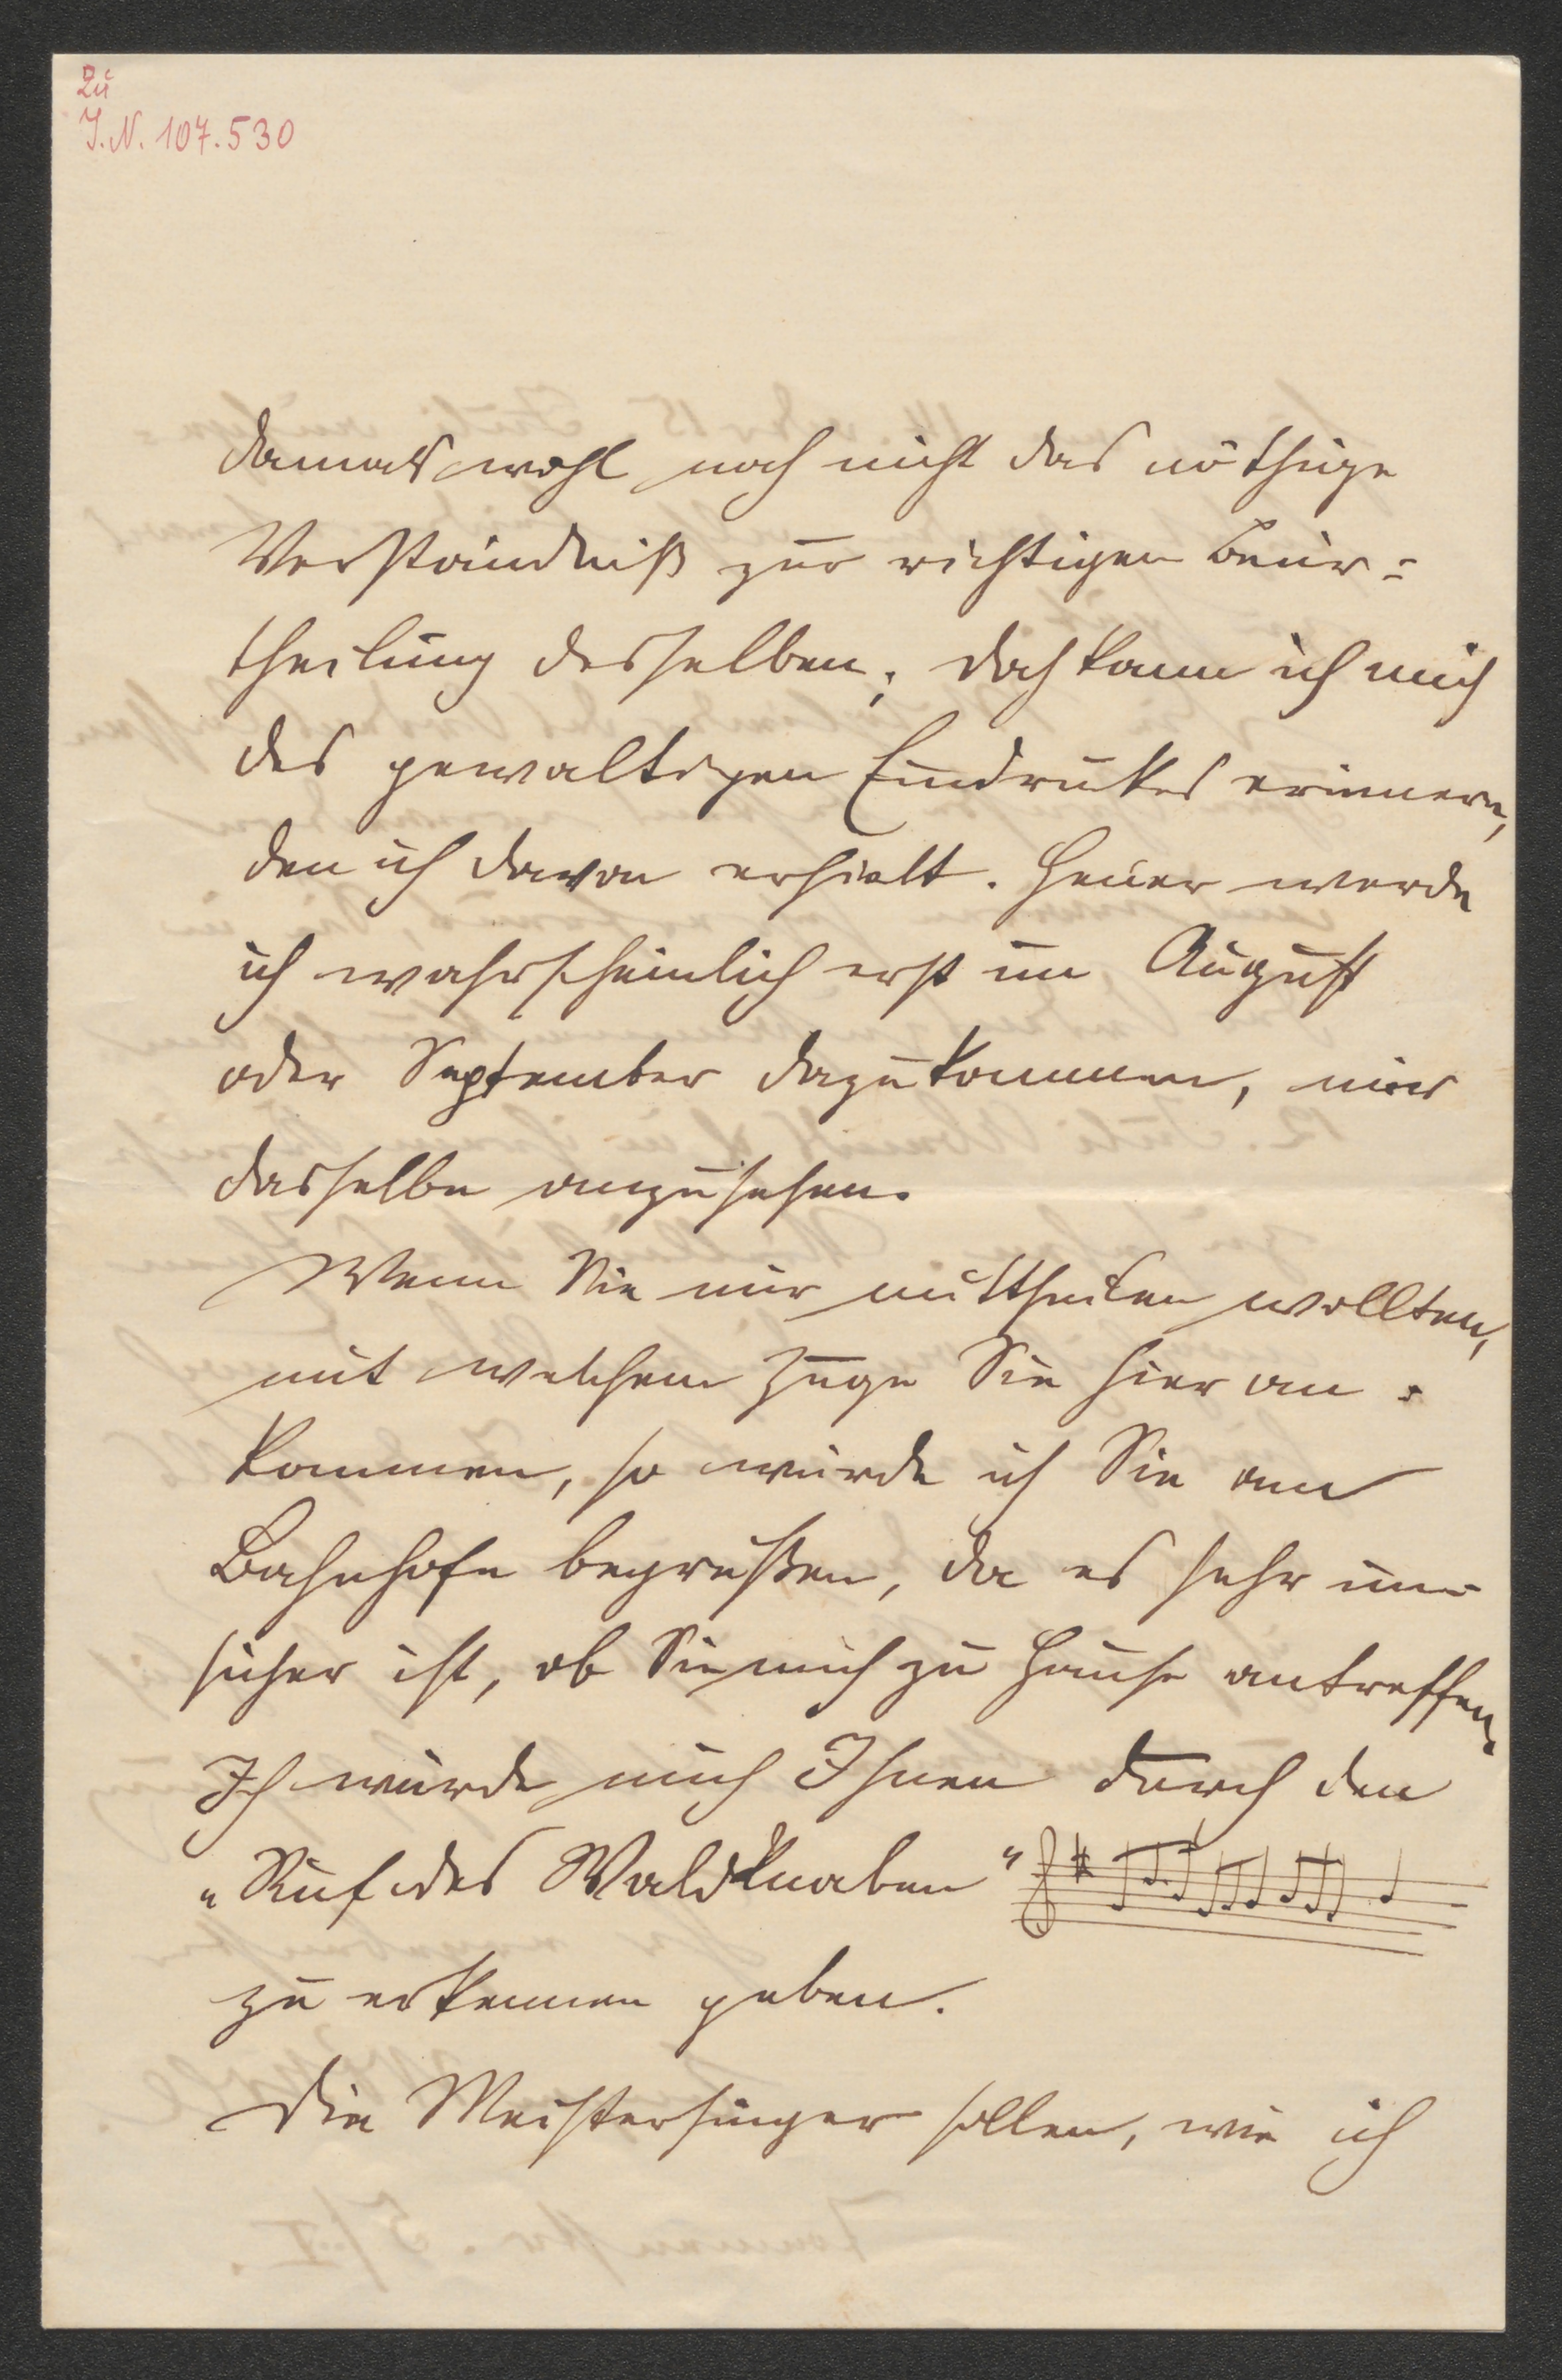 Zu
I.N. 107.530
damals wohl noch nicht das nöthige
Verständniß zur richtigen Beur=
theilung desselben; doch kann ich mich
des gewaltigen Eindrukes erinnern,
den ich davon erhielt. Heuer werde
ich wahrscheinlich erst im August
oder September dazukommen, mir
dasselbe anzusehen.
Wenn Sie mir mittheilen wollten,
mit welchem Zuge Sie hier an=
kommen, so würde ich Sie am
Bahnhofe begrüßen, da es sehr un=
sicher ist, ob Sie mich zu Hause antreffen.
Ich würde mich Ihnen durch den
„Ruf des Waldknaben"
zu erkennen geben.
Die Meistersinger sollen, wie ich